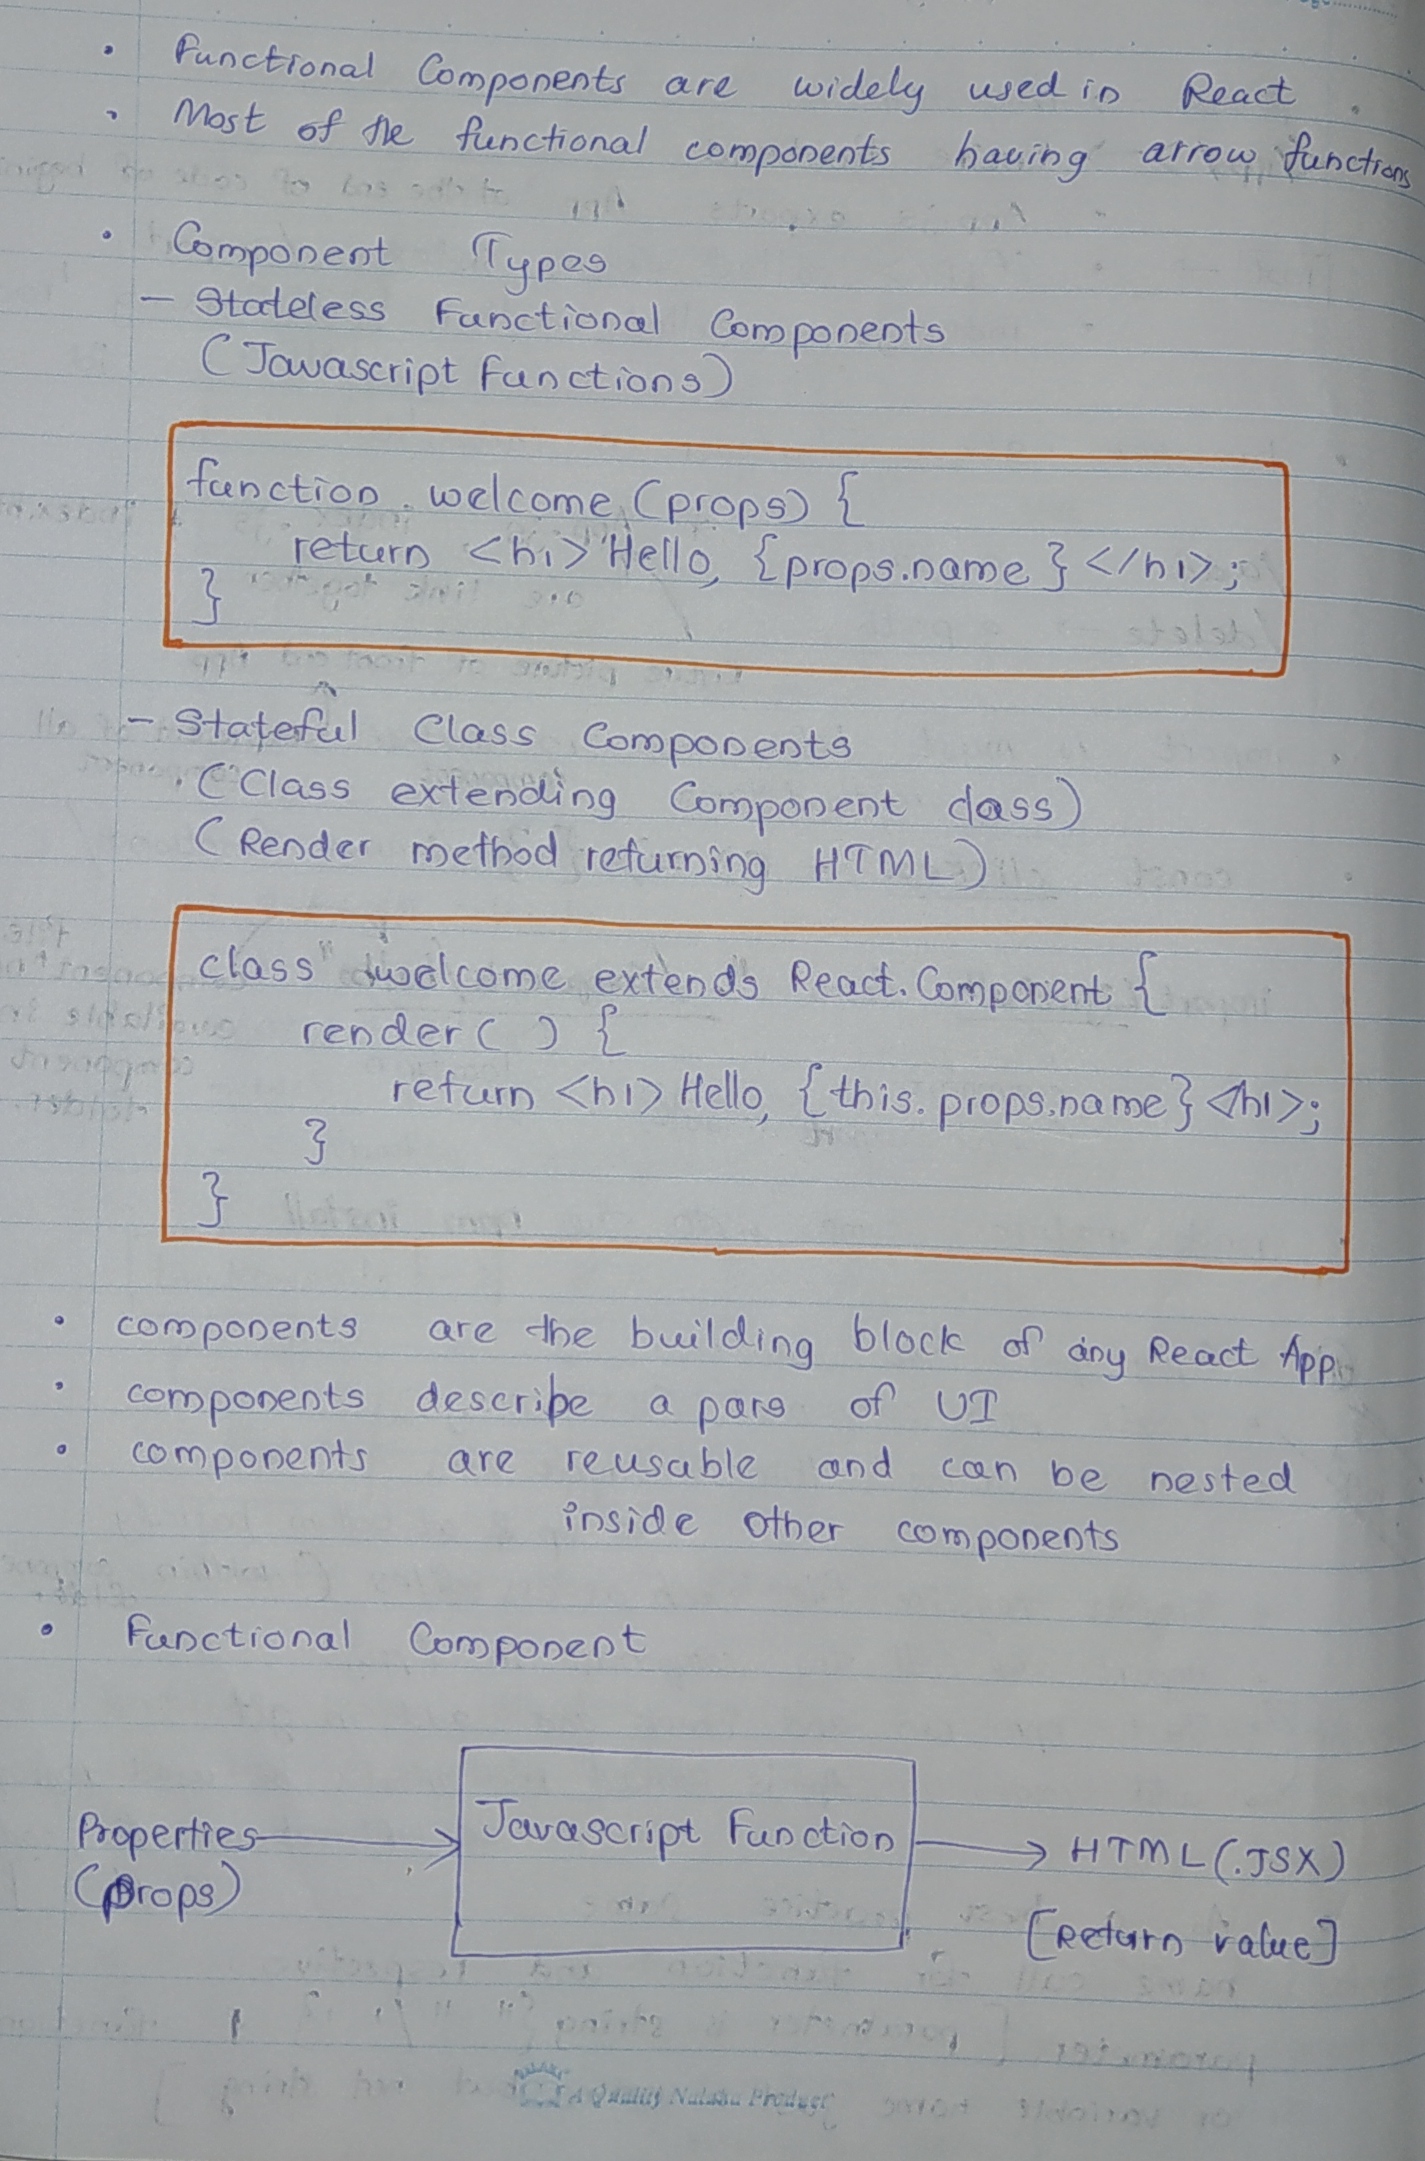 • Functional Components are widely used in React.
• Most of the functional components having arrow functions
• Component Types
– Stateless Functional Components
(Javascript functions)
function welcome (props) {
return <h1> Hello, {props.name} </h1>;
}
– Stateful Class Components
(Class extending Component class)
(Render method returning HTML)
class welcome extends React.Component {
render ( ) {
return <h1> Hello, {this.props.name} </h1>;
}
}
• components are the building block of any React App.
• components describe a pars of UI
• components are reusable and can be nested
inside other components
• Functional Component
Properties
(props)
Javascript Function
HTML (.JSX)
[Return value]
A Quality Nataku Product